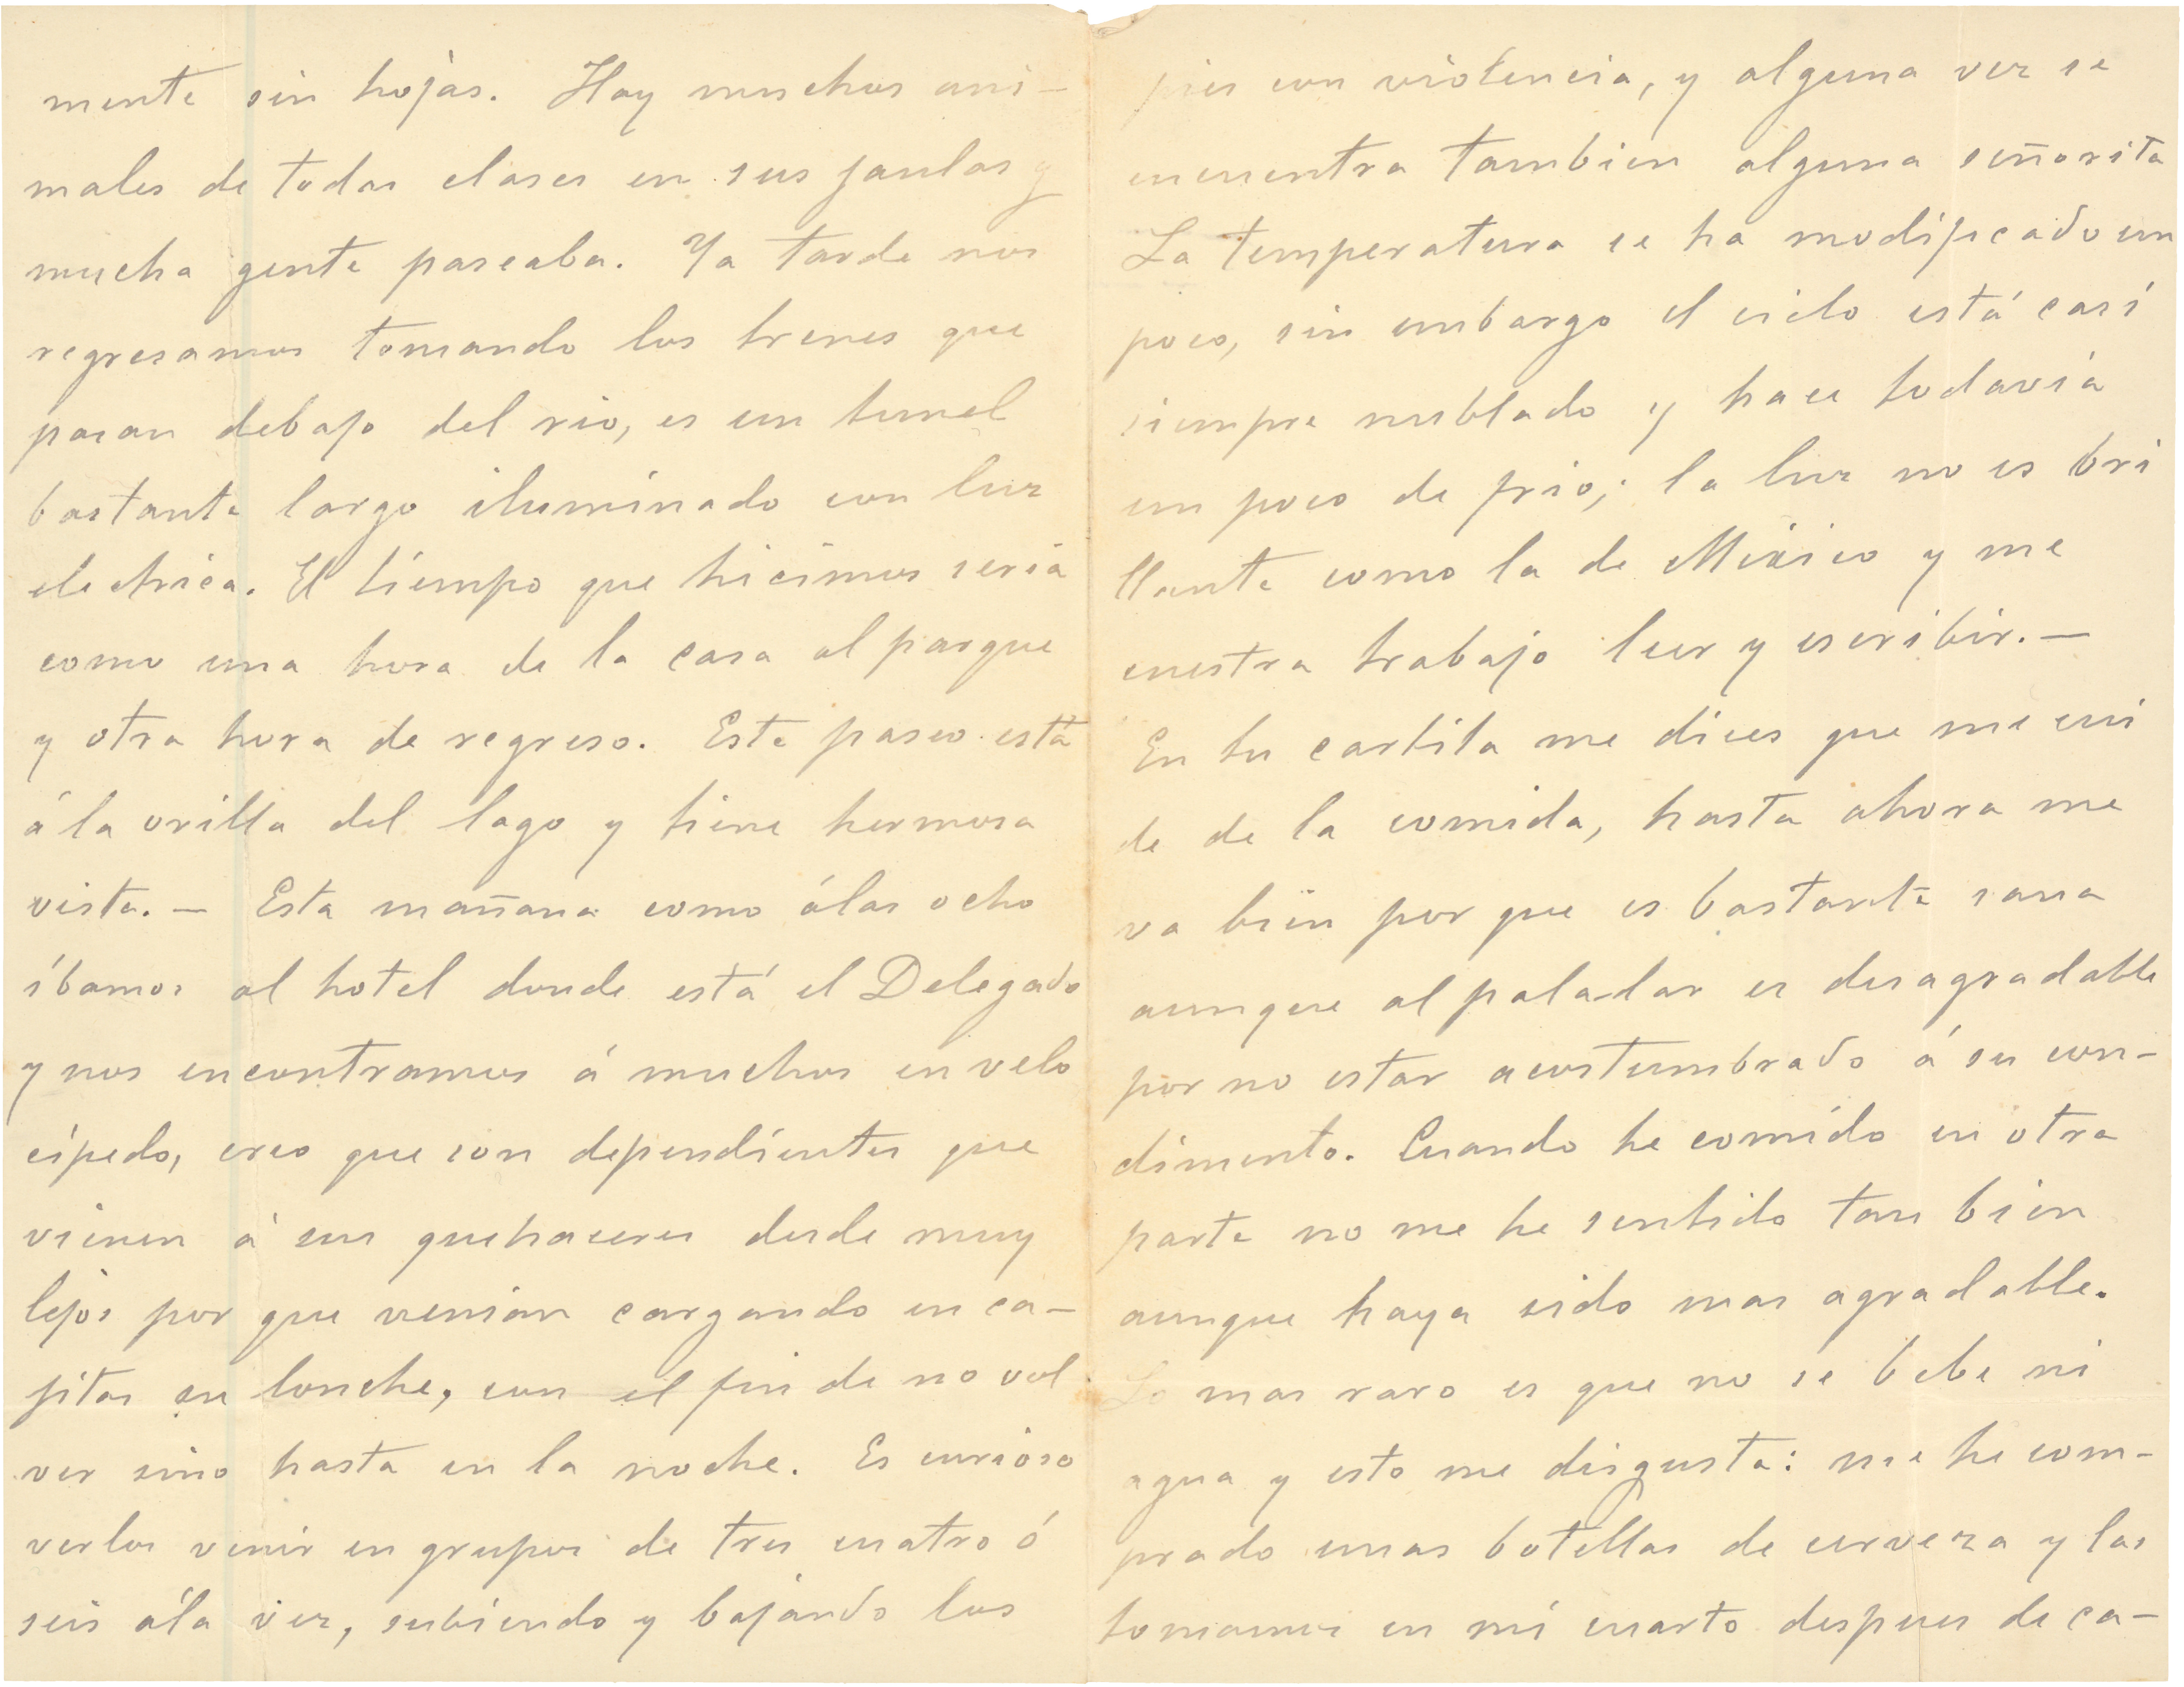 mente sin hojas. Hay muchos ani-
males de todas clases en sus jaulas y
mucha gente paseaba. Ya tarde nos
regresamos tomando los trenes que
pasan debajo del rio, es un tunel
bastante largo iluminado con luz
electrica. El tiempo que hicimos seria
como una hora de la casa al parque
y otra hora de regreso. Este paseo está
á la orilla del lago y tiene hermosa
vista. — Esta mañana como álas ocho
íbamos al hotel donde está el Delegado
y nos encontramos á muchos en velo
cípedo, creo que son dependientes que
vienen á sus quehaceres desde muy
lejos por que venian cargando en ca-
jitas su lonche, con el fin de no vol
ver sino hasta en la noche. Es curioso
verlos venir en grupos de tres cuatro ó
seis ála vez, subiendo y bajando los
pies con violencia, y alguna vez se
encuentra tambien alguna señorita
La temperatura se ha modificado un
poco, sin embargo el cielo está casi
siempre nublado y hace todavia
un poco de frio; la luz no es bri
llante como la de México y me
cuestra trabajo leer y escribir. —
En tu cartita me dices que me cui
de de la comida, hasta ahora me
va bien por que es bastante sana
aunque al paladar es desagradable
por no estar acostumbrado á su con-
dimento. Cuando he comido en otra
parte no me he sentido tan bien
aunque haya sido mas agradable.
Lo mas raro es que no se bebe ni
agua y esto me disgusta: me he com-
prado unas botellas de cerveza y las
tomamos en mi cuarto despues de ca-